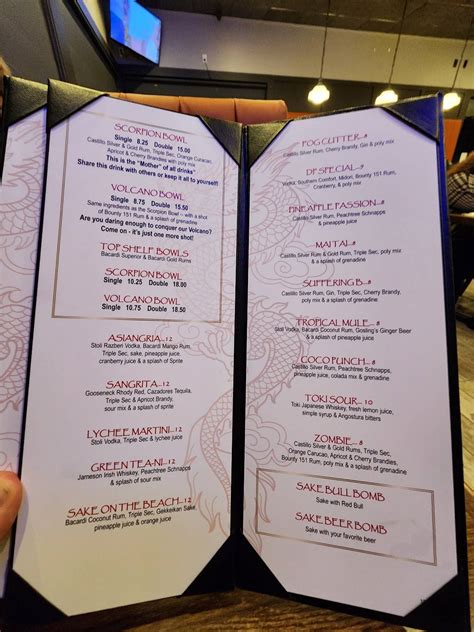 SCORPION BOWL
Single 8.25 Double 15.00
Castillo Silver & Gold Rum, Triple Sec, Orange Curacao,
Apricot & Cherry Brandies with poly mix
This is the "Mother" of all drinks"
Share this drink with others or keep it all to yourself!
VOLCANO BOWL
Single 8.75 Double 15.50
Same ingredients as the Scorpion Bowl – with a shot
of Bounty 151 Rum & a splash of grenadine
Are you daring enough to conquer our Volcano?
Come on - it's just one more shot!
TOP SHELF BOWLS
Bacardi Superior & Bacardi Gold Rums
SCORPION BOWL
Single 10.25 Double 18.00
VOLCANO BOWL
Single 10.75 Double 18.50
ASIANGRIA...12
Stoli Razberi Vodka, Bacardi Mango Rum,
Triple Sec, sake, pineapple juice,
cranberry juice & a splash of Sprite
SANGRITA...12
Gooseneck Rhody Red, Cazadores Tequila,
Triple Sec & Apricot Brandy,
sour mix & a splash of sprite
LYCHEE MARTINI...12
Stoli Vodka, Triple Sec & lychee juice
GREEN TEA-NI...12
Jameson Irish Whiskey, Peachtree Schnapps
& splash of sour mix
SAKE ON THE BEACH...12
Bacardi Coconut Rum, Triple Sec, Gekkeikan Sake,
pineapple juice & orange juice
FOG CUTTER...8
Castillo Silver Rum, Cherry Brandy, Gin & poly mix
DP SPECIAL...9
Vodka, Southern Comfort, Midori, Bounty 151 Rum,
Cranberry, & poly mix
PINEAPPLE PASSION...8
Castillo Silver Rum, Peachtree Schnapps
& pineapple juice
MAI TAI...8
Castillo Silver Rum & Gold Rum, Triple Sec, poly mix
& a splash of grenadine
SUFFERING B...8
Castillo Silver Rum, Gin, Triple Sec, Cherry Brandy,
poly mix & a splash of grenadine
TROPICAL MULE...8
Stoli Vodka, Bacardi Coconut Rum, Gosling's Ginger Beer
& a splash of pineapple juice
LOCO PUNCH...8
Castillo Silver Rum, Peachtree Schnapps,
pineapple juice, colada mix & grenadine
TOKI SOUR...10
Toki Japanese Whiskey, fresh lemon juice,
simple syrup & Angostura bitters
ZOMBIE...8
Castillo Silver & Gold Rums, Triple Sec,
Orange Curacao, Apricot & Cherry Brandies,
Bounty 151 Rum, poly mix & a splash of grenadine
SAKE BULL BOMB
Sake with Red Bull
SAKE BEER BOMB
Sake with your favorite beer